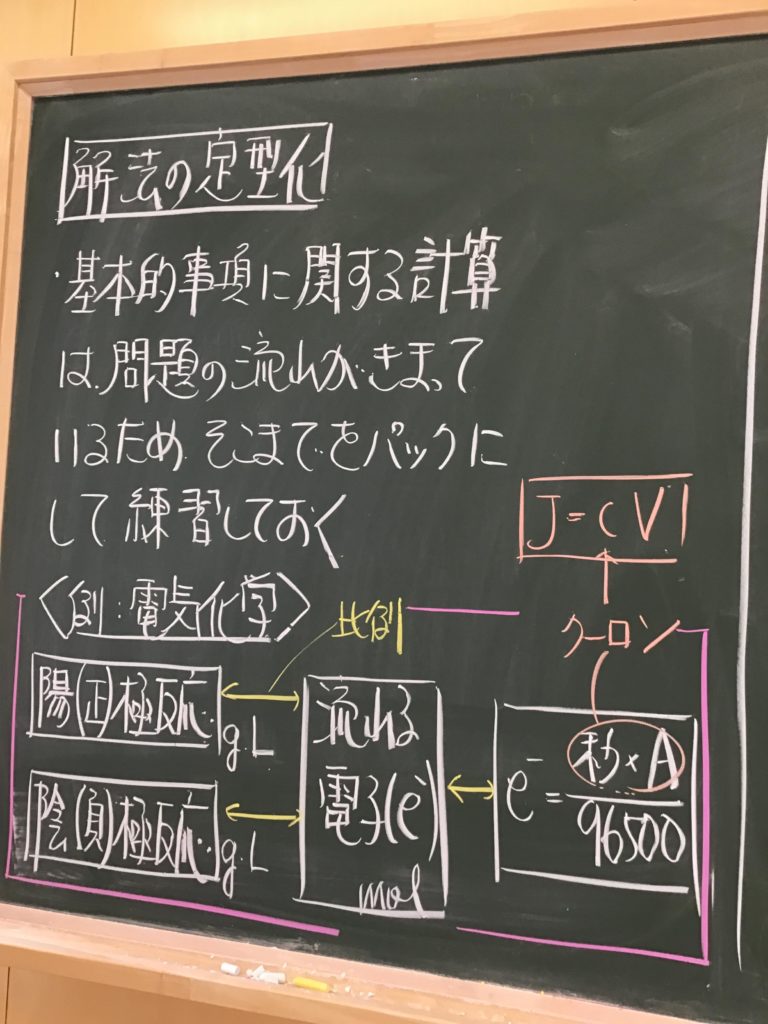 解法の定型化
・基本的事項に関する計算
は問題の流れがきまって
いるため そこまでをパックに
して練習しておく
J=CV
クーロン
〈例:電気化学〉
比例
陽(正)極反応
g.L
陰(負)極反応
g.L
流れる
電子(e⁻)
mol
e⁻=秒×A/96500